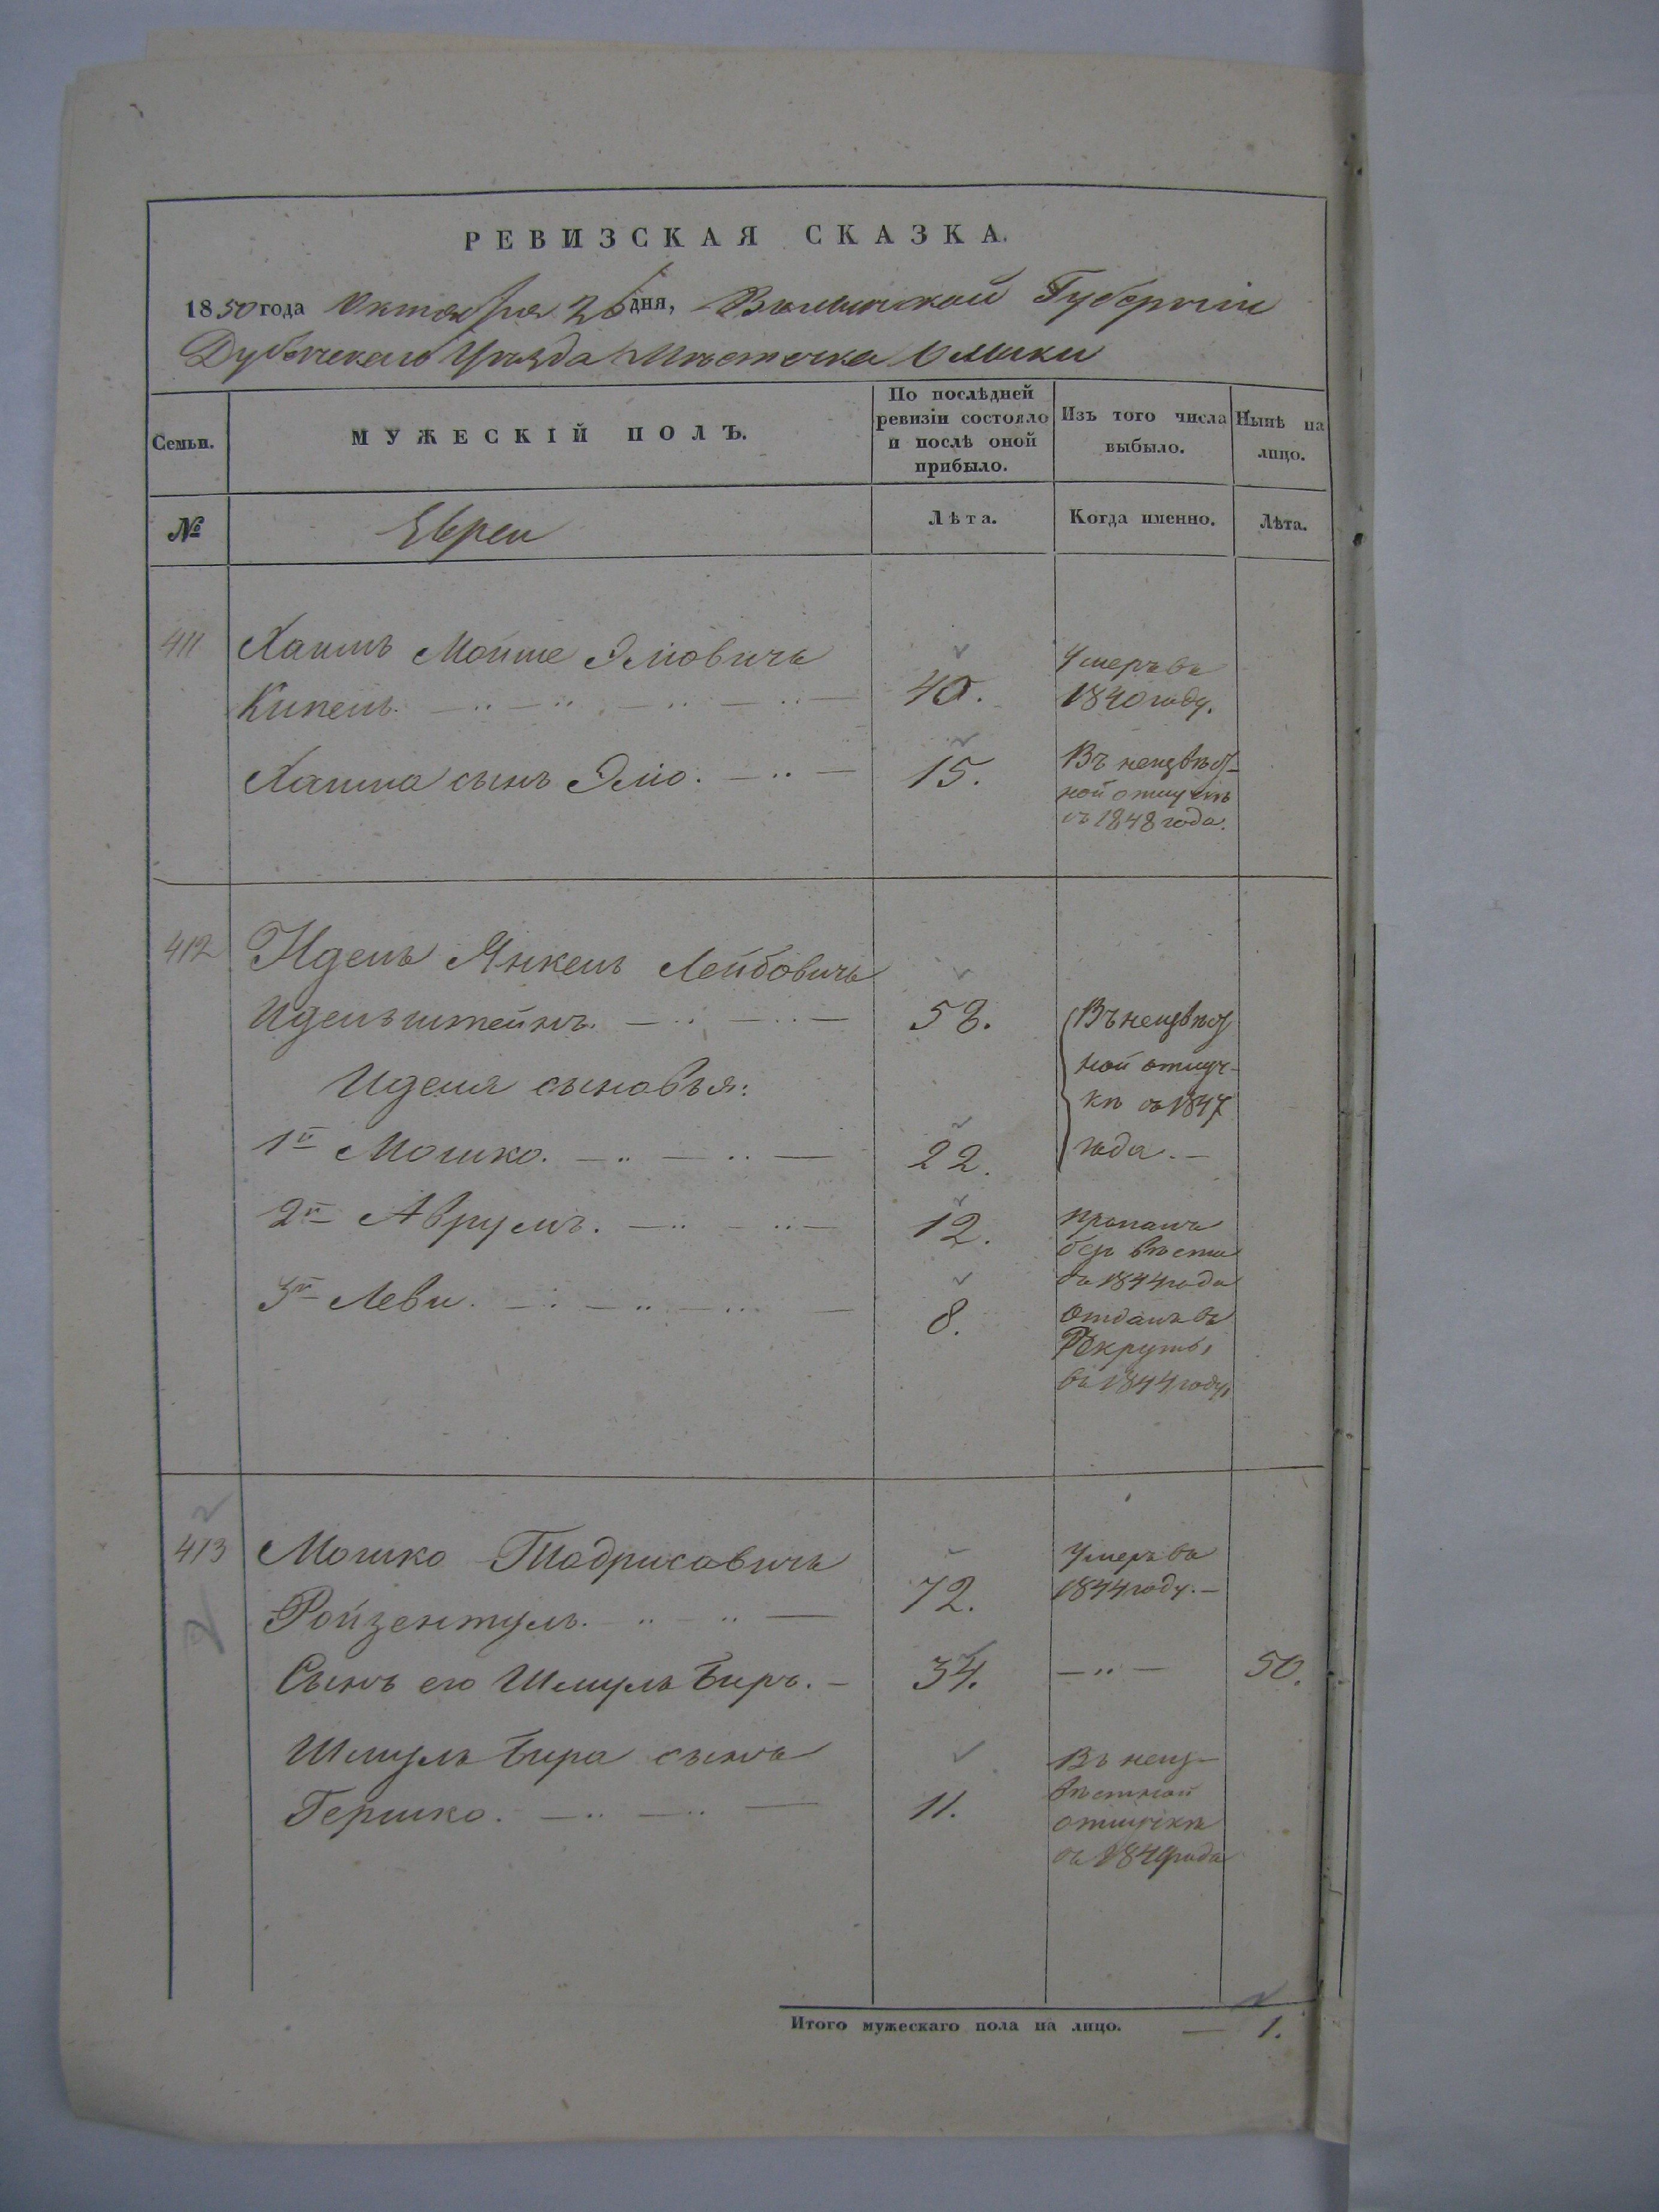 РЕВИЗСКАЯ СКАЗКА.
1850 года Октября 26 дня, Волынской Губернiи
Дубенскаго Уѣзда Мѣстечка Олыки
Семьи.
МУЖЕСКIЙ ПОЛЪ.
По послѣдней
ревизiи состояло
и послѣ оной
прибыло.
Изъ того числа
выбыло.
Нынѣ на
лицо.
№
Евреи
Лѣта.
Когда именно.
Лѣта.
411 Хаимъ Мойше Элiовичъ
Кипель. 40. Умеръ въ
1840 году.
Хаима сынъ Элiо. 15. Въ неизвѣст-
ной отлучкѣ
съ 1848 года.
412 Идель Янкель Лейбовичъ
Идельштейнъ. 58. Въ неизвѣст
ной отлуч-
кѣ съ 1847
года.
Иделя сыновья:
1й Мошко. 22.
2й Аврумъ. 12. пропалъ
безъ вѣсти
съ 1844 года
3й Леви. 8. отданъ въ
Рекруты,
въ 1844 году,
413 Мошко Тодрисовичъ
Ройзентуль. 72. Умеръ въ
1844 году.
Сынъ его Шмуль Биръ. 34. 50.
Шмуль Бира сынъ
Гершко. 11. Въ неиз-
вѣстной
отлучкѣ
съ 1849 года
Итого мужескаго пола на лицо. 1.